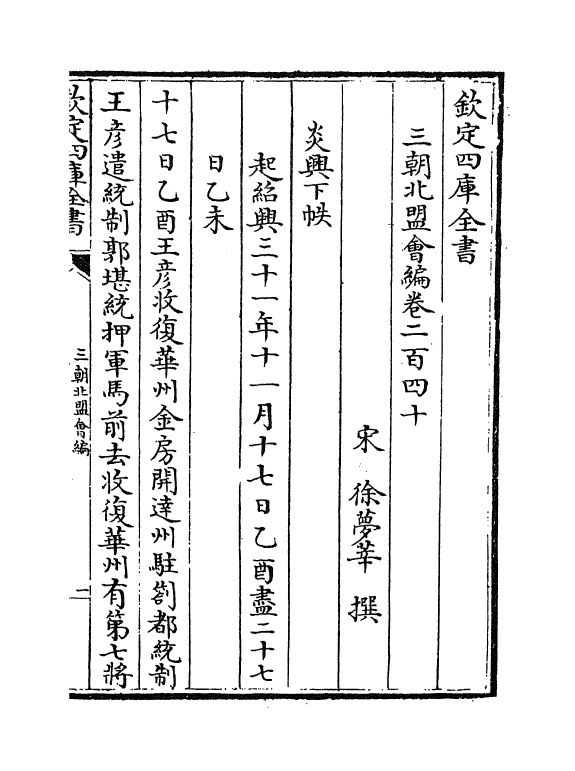 欽定四庫全書
三朝北盟會編卷二百四十
宋 徐夢莘 撰
炎興下帙
起紹興三十一年十一月十七日乙酉盡二十七
日乙未
十七日乙酉王彦收復華州金房開達州駐劄都統制
王彦遣統制郭堪統押軍馬前去收復華州有第七將
欽定四庫全書
三朝北盟會編